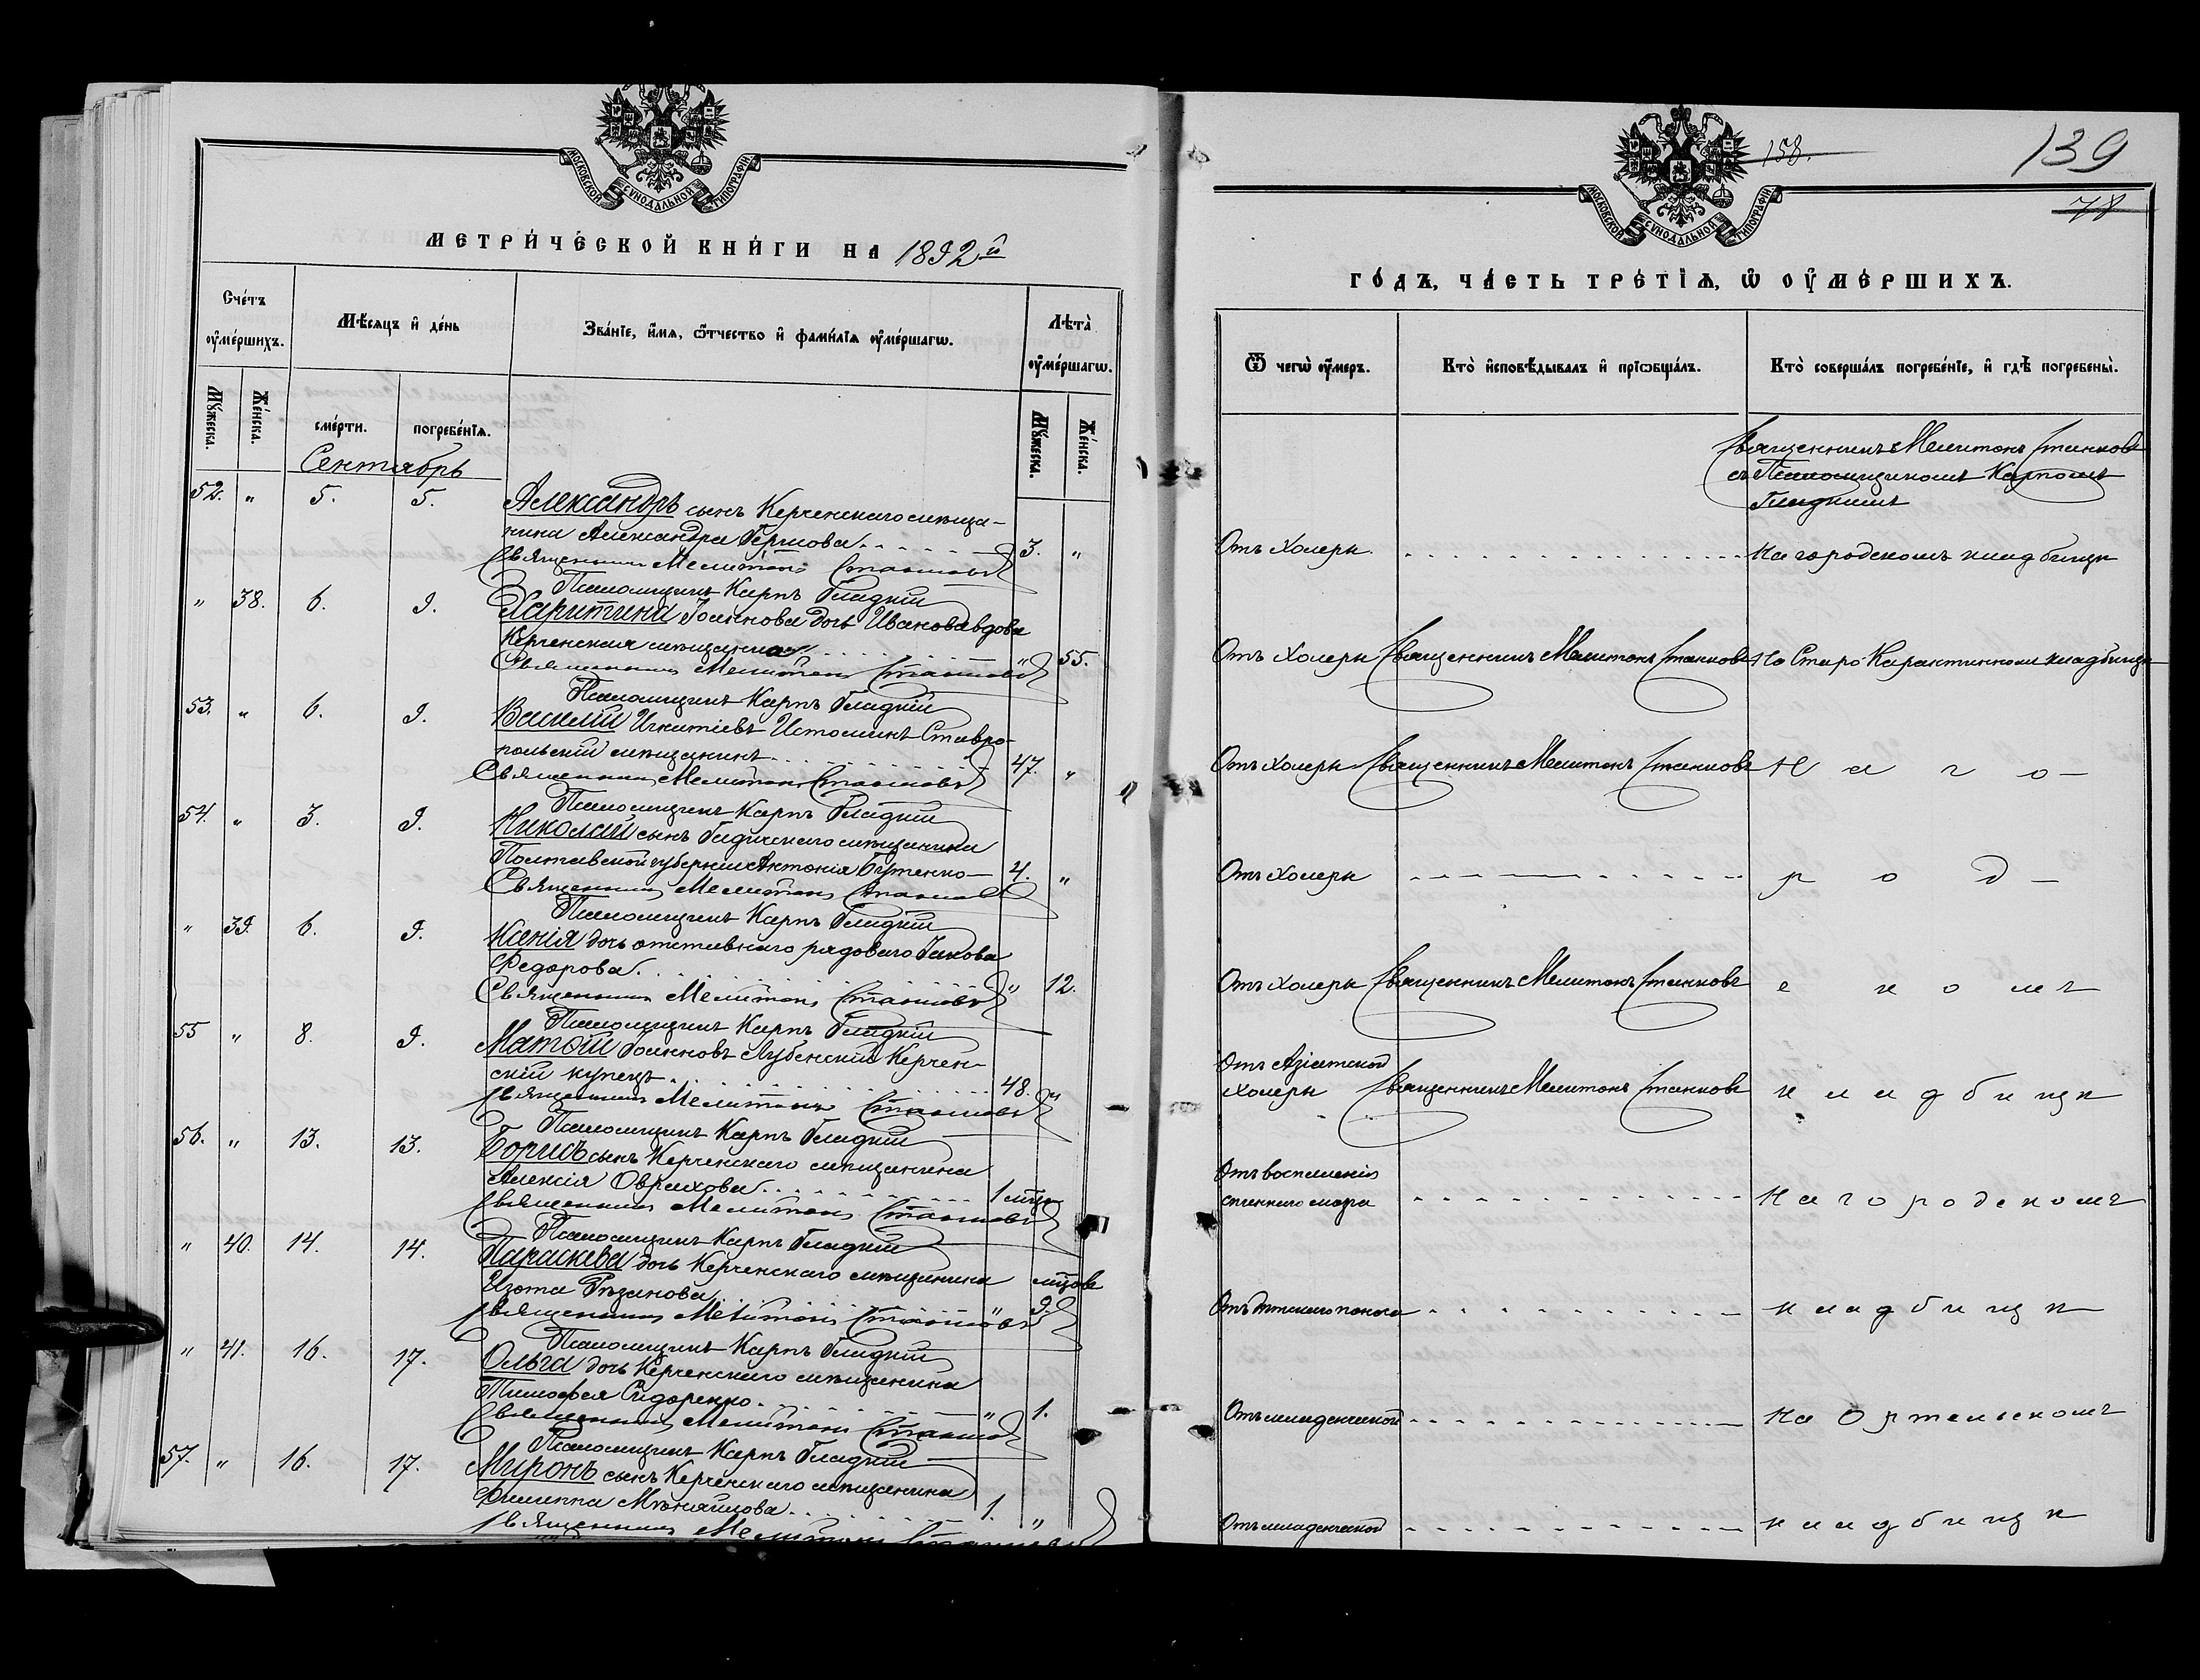 МОСКОВСКОЙ СУНОДАЛЬНОЙ ТИПОГРАФІИ
МЕТРИЧЕСКОЙ КНИГИ НА 1892й
Счетъ оумершихъ.
Мѣсяцъ и день
Званіе, имя, отчество и фамилія оумершагѡ.
Лѣта оумершагѡ.
Мужеска.
Женска.
смерти.
погребенія.
Мужеска.
Женска.
Сентябрь
52. " 5. 5. Александръ сынъ Керченскаго мѣща-
нина Александра 3. "
Священникъ Мелитонъ Станковъ
Псаломщикъ Карпъ Гладкій
" 38. 6. 9. Харитина Іоаннова дочь Иванова вдова
Керченская мѣщанка " 55.
Священникъ Мелитонъ Станковъ
Псаломщикъ Карпъ Гладкій
53. " 6. 9. Василій Игнатіевъ Истоминъ Ставро-
польскій мѣщанинъ 47. "
Священникъ Мелитонъ Станковъ
Псаломщикъ Карпъ Гладкій
54. " 3. 9. Николай сынъ Гадячскаго мѣщанина
Полтавской губерніи Антонія Бутенко 4. "
Священникъ Мелитонъ Станковъ
Псаломщикъ Карпъ Гладкій
" 39. 6. 9. Ксенія дочь отставнаго рядоваго Іакова
Федорова. " 12.
Священникъ Мелитонъ Станковъ
Псаломщикъ Карпъ Гладкій
55 " 8. 9. Матѳій Іоанновъ Лубенскій Керчен-
скій купецъ. 48. "
Священникъ Мелитонъ Станковъ
Псаломщикъ Карпъ Гладкій
56. " 13. 13. Борисъ сынъ Керченскаго мѣщанина
Алексія Оврахова 1 мца
Священникъ Мелитонъ Станковъ
Псаломщикъ Карпъ Гладкій
" 40. 14. 14. Параскева дочь Керченскаго мѣщанина мцовъ
Изота Рѣзанова " 9.
Священникъ Мелитонъ Станковъ
Псаломщикъ Карпъ Гладкій
" 41. 16. 17. Ольга дочь Керченскаго мѣщанина
Тимофея Сидоренко. " 1.
Священникъ Мелитонъ Станковъ
Псаломщикъ Карпъ Гладкій
57. " 16. 17. Миронъ сынъ Керченскаго мѣщанина
Филиппа 1. "
Священникъ Мелитонъ Станковъ
МОСКОВСКОЙ СУНОДАЛЬНОЙ ТИПОГРАФІИ
158.
139
78
ГОДЪ, ЧАСТЬ ТРЕТІЯ, Ѡ ОУМЕРШИХЪ.
Ѿ чегѡ оумеръ.
Кто исповѣдывалъ и пріобщалъ.
Кто совершалъ погребеніе, и гдѣ погребены.
Священникъ Мелитонъ Станковъ
съ Псаломщикомъ Карпомъ
Гладкимъ
Отъ холеры. На городскомъ кладбищѣ
Отъ холеры Священникъ Мелитонъ Станковъ На Старо Карантинномъ кладбищѣ
Отъ холеры Священникъ Мелитонъ Станковъ На го-
Отъ холеры род-
Отъ холеры Священникъ Мелитонъ Станковъ скомъ
Отъ Азіатской
холеры Священникъ Мелитонъ Станковъ кладбищѣ
Отъ воспаленія
спиннаго мозга На городскомъ
Отъ дѣтскаго поноса кладбищѣ
Отъ младенческой На Ортельскомъ
Отъ младенческой кладбищѣ